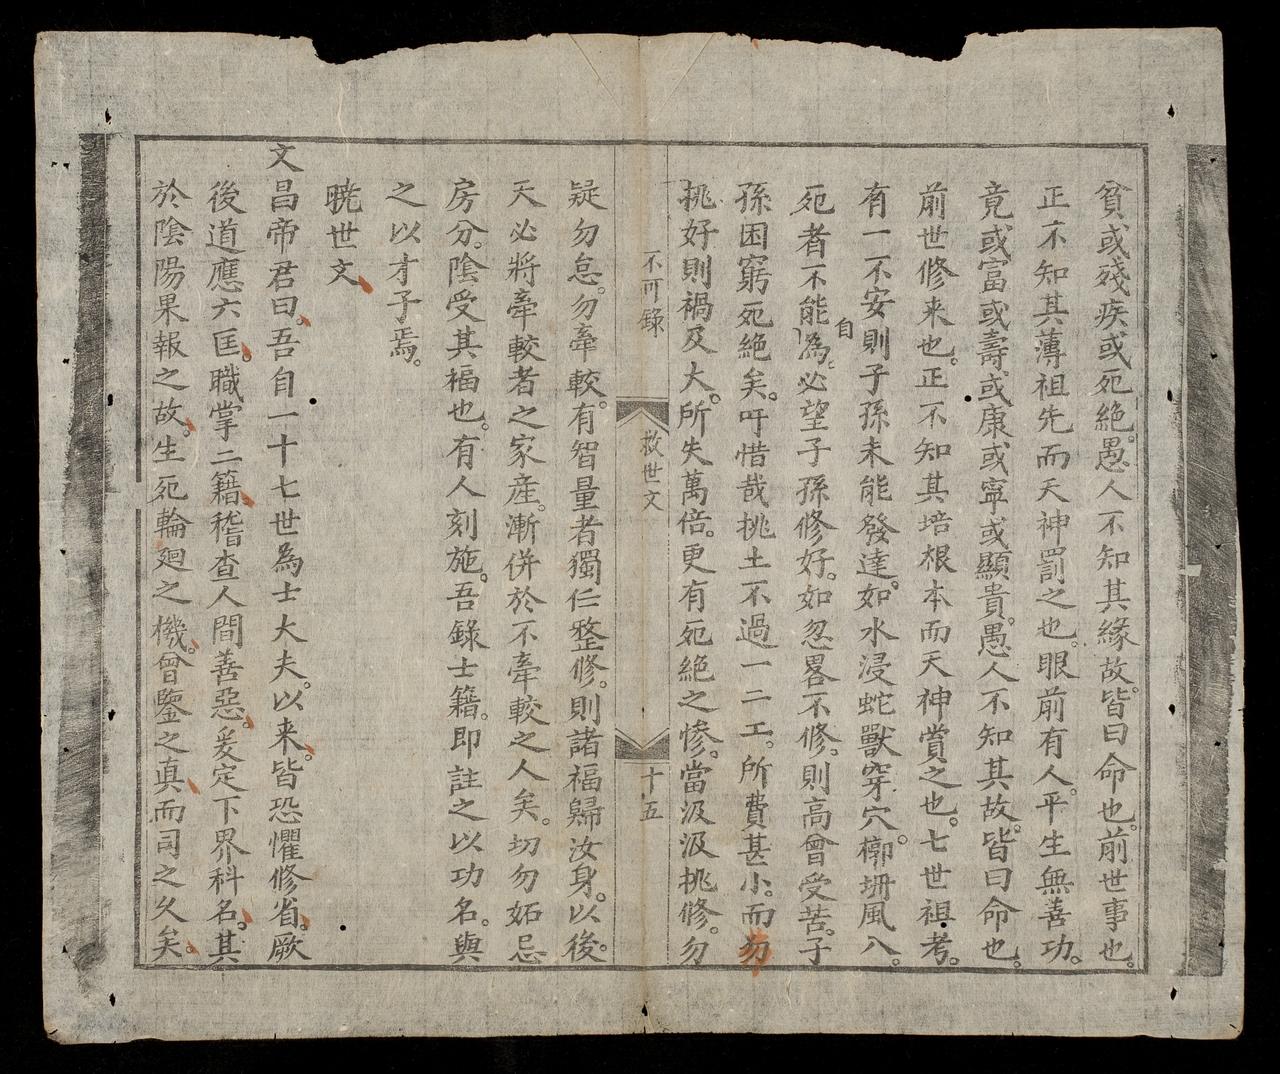 貧或殘疾或死絶。愚人不知其緣故。皆曰命也。前世事也。
正不知其薄祖先而天神罰之也。眼前有人。平生無善功。
竟或富或壽或康或寧或顯貴。愚人不知其故。皆曰命也。
前世修来也。正不知其培根本而天神賞之也。七世祖考。
有一不安則子孫未能發達。如水浸蛇獸穿穴。槨坍風入。
死者不能自為。必望子孫修好。如忽畧不修。則高曾受苦。子
孫困窮死絶矣。吁惜哉挑土不過一二工。所費甚小。而勿
挑好則禍及大。所失萬倍。更有死絶之慘。當汲汲挑修。勿
不可錄 救世文 十五
疑勿怠。勿牽較。有智量者獨仁整修。則諸福歸汝身。以後。
天必將牽較者之家産。漸併於不牽較之人矣。切勿妬忌
房分。陰受其福也。有人刻施。吾錄士籍。即註之以功名。與
之以才子焉。
曉世文
文昌帝君曰。吾自一十七世為士大夫。以来。皆恐懼修省。厥
後道應六匡。職掌二籍。稽查人間善惡。爰定下界科名。其
於陰陽果報之故。生死輪廻之機。曾鑒之真而司之久矣。